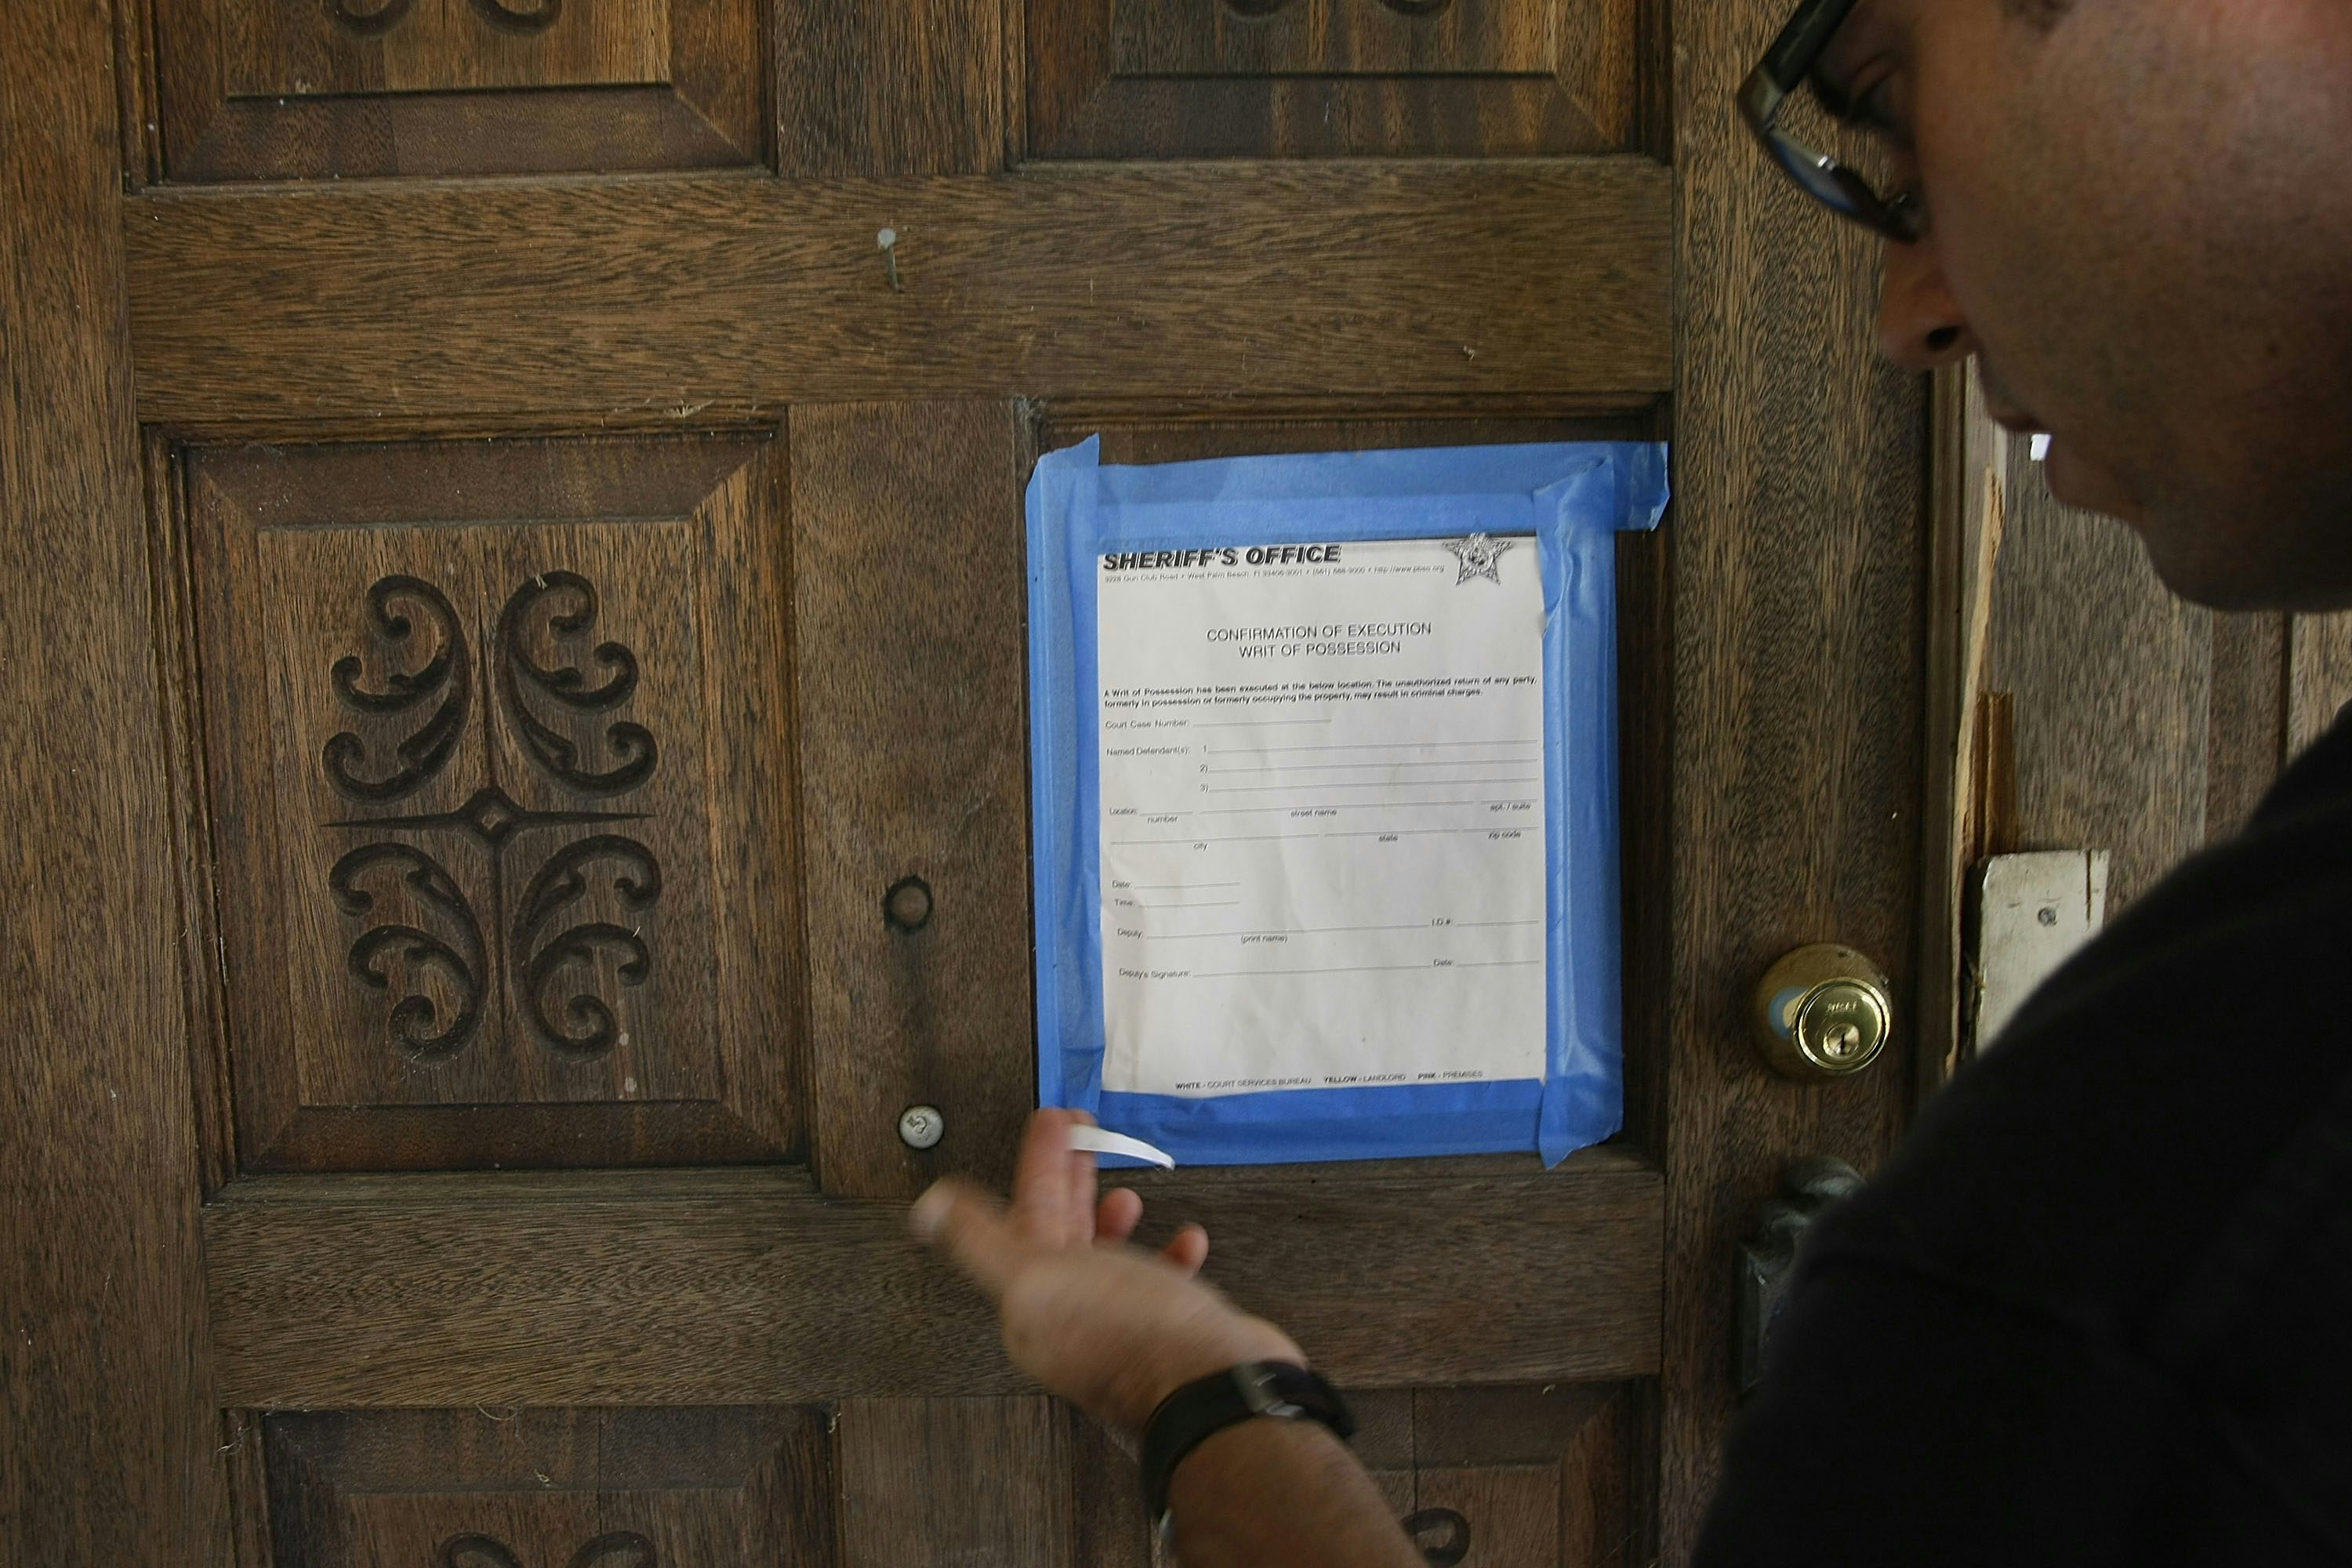 SHERIFF'S OFFICE
3228 Gun Club Road • West Palm Beach, Fl 33406-3001 • (561) 688-3000 • http://www.pbso.org
CONFIRMATION OF EXECUTION
WRIT OF POSSESSION
A Writ of Possession has been executed at the below location. The unauthorized return of any party,
formerly in possession or formerly occupying the property, may result in criminal charges.
Court Case Number:
Named Defendant(s): 1
2)
3)
Location:
number street name apt. / suite
city state zip code
Date:
Time:
Deputy: I.D.#:
(print name)
Deputy's Signature: Date:
WHITE - COURT SERVICES BUREAU YELLOW - LANDLORD PINK - PREMISES